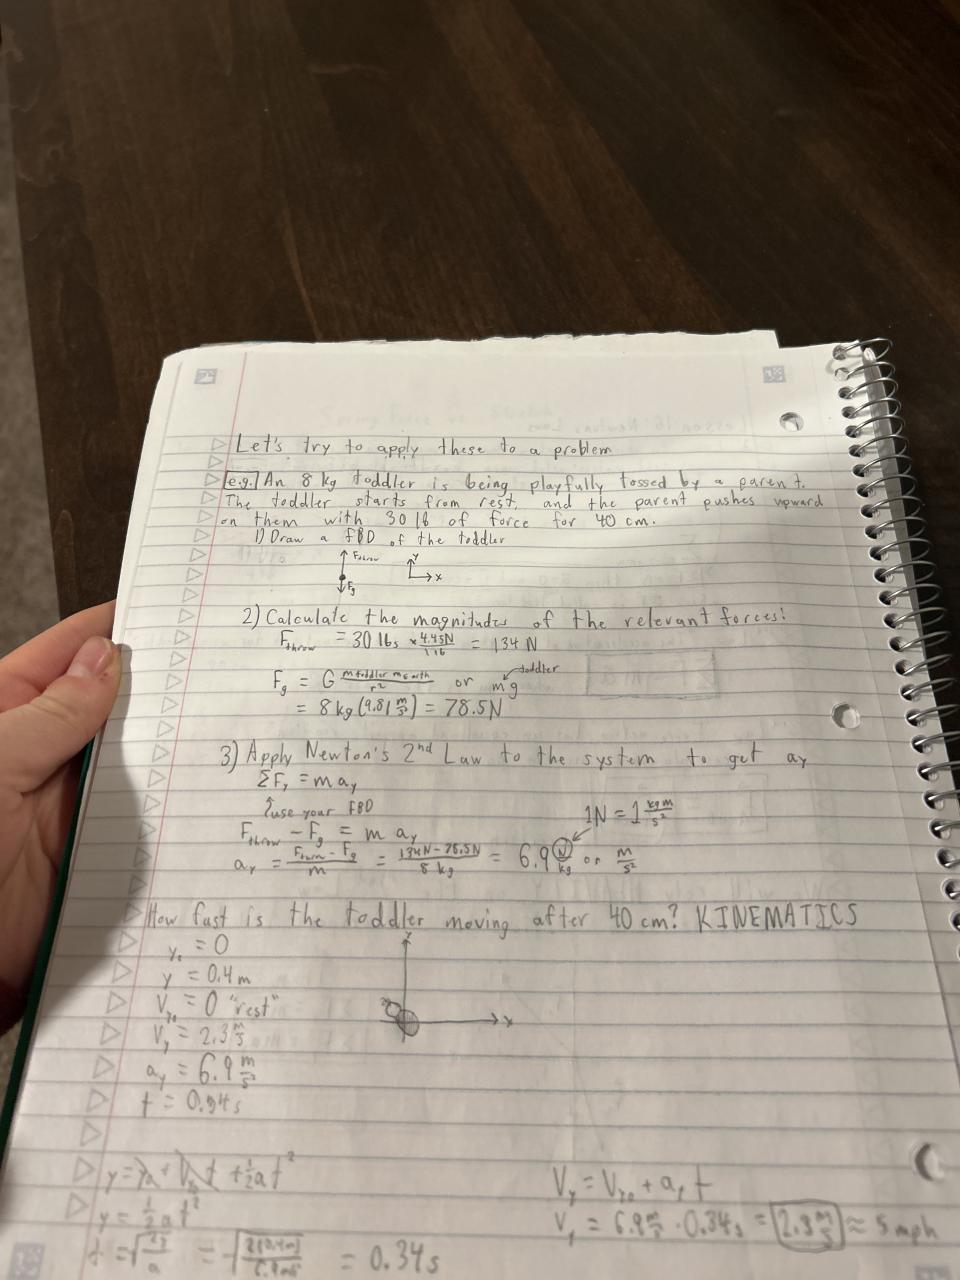 Let's try to apply these to a problem
e.g. An 8 kg toddler is being playfully tossed by a parent.
The toddler starts from rest, and the parent pushes upward
on them with 30 lb of force for 40 cm.
1) Draw a FBD of the toddler
F_throw
F_g
y
x
2) Calculate the magnitudes of the relevant forces!
F_throw = 30 lbs × 4.45N/1 lb = 134 N
toddler
F_g = G m_toddler m_Earth / r² or mg
= 8 kg (9.81 m/s²) = 78.5N
3) Apply Newton's 2nd Law to the system to get a_y
ΣF_y = m a_y
use your FBD
1N = 1 kg m/s²
F_throw - F_g = m a_y
a_y = F_throw - F_g / m = 134N - 78.5N / 8 kg = 6.9 N/kg or m/s²
How fast is the toddler moving after 40 cm? KINEMATICS
y₀ = 0
y
y = 0.4 m
V_y₀ = 0 "rest"
x
V_y = 2.3 m/s
a_y = 6.9 m/s²
t = 0.34 s
y = y₀ + V_y₀ t + ½ a t²
V_y = V_y₀ + a_y t
y = ½ a t²
V_y = 6.9 m/s² · 0.34 s = 2.3 m/s ≈ 5 mph
t = √(2y/a) = √(2(0.4m)/6.9 m/s²) = 0.34 s